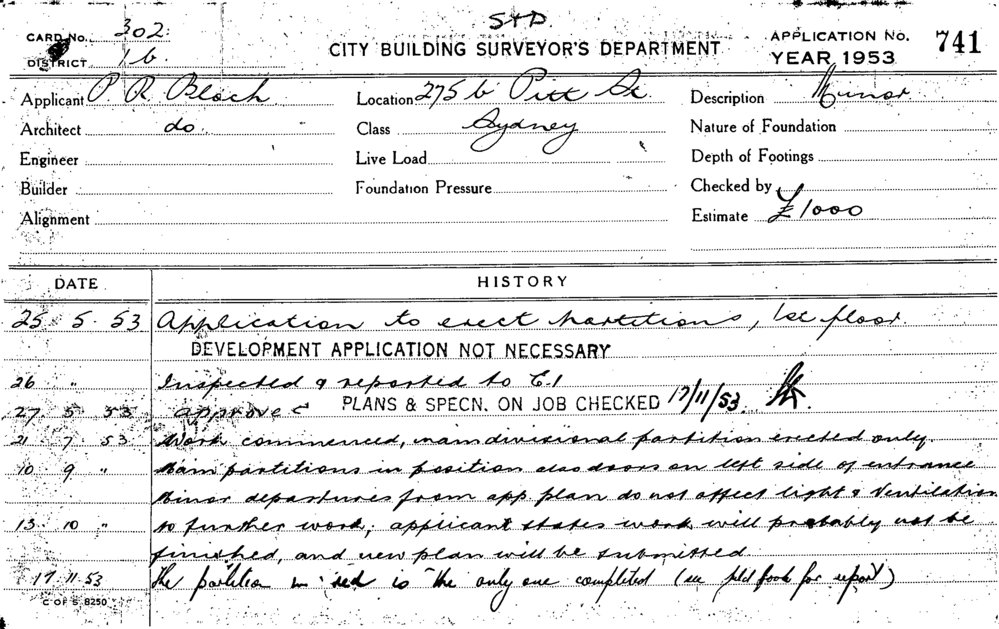 S&D.
CARD No. 302.
CITY BUILDING SURVEYOR'S DEPARTMENT
APPLICATION No. 741
DISTRICT 1b.
YEAR 1953
Applicant P. R. Bloch
Location 275b Pitt St.
Description Minor
Architect do.
Class Sydney
Nature of Foundation
Engineer
Live Load
Depth of Footings
Builder
Foundation Pressure
Checked by
Alignment
Estimate £1000
DATE HISTORY
25 5 53 Application to erect partitions, 1st floor
DEVELOPMENT APPLICATION NOT NECESSARY
26 " Inspected & reported to C.I
27 5 53 approved PLANS & SPECN. ON JOB CHECKED 17/11/53.
21 7 53 Work commenced, main divisional partition erected only.
10 9 " Main partitions in position also doors on left side of entrance
Minor departures from app plan do not affect light & ventilation
13 10 " No further work; applicant states work will probably not be
finished, and new plan will be submitted
17 11 53 The partition in red is the only one completed (see fld book for report)
C OF S 8250